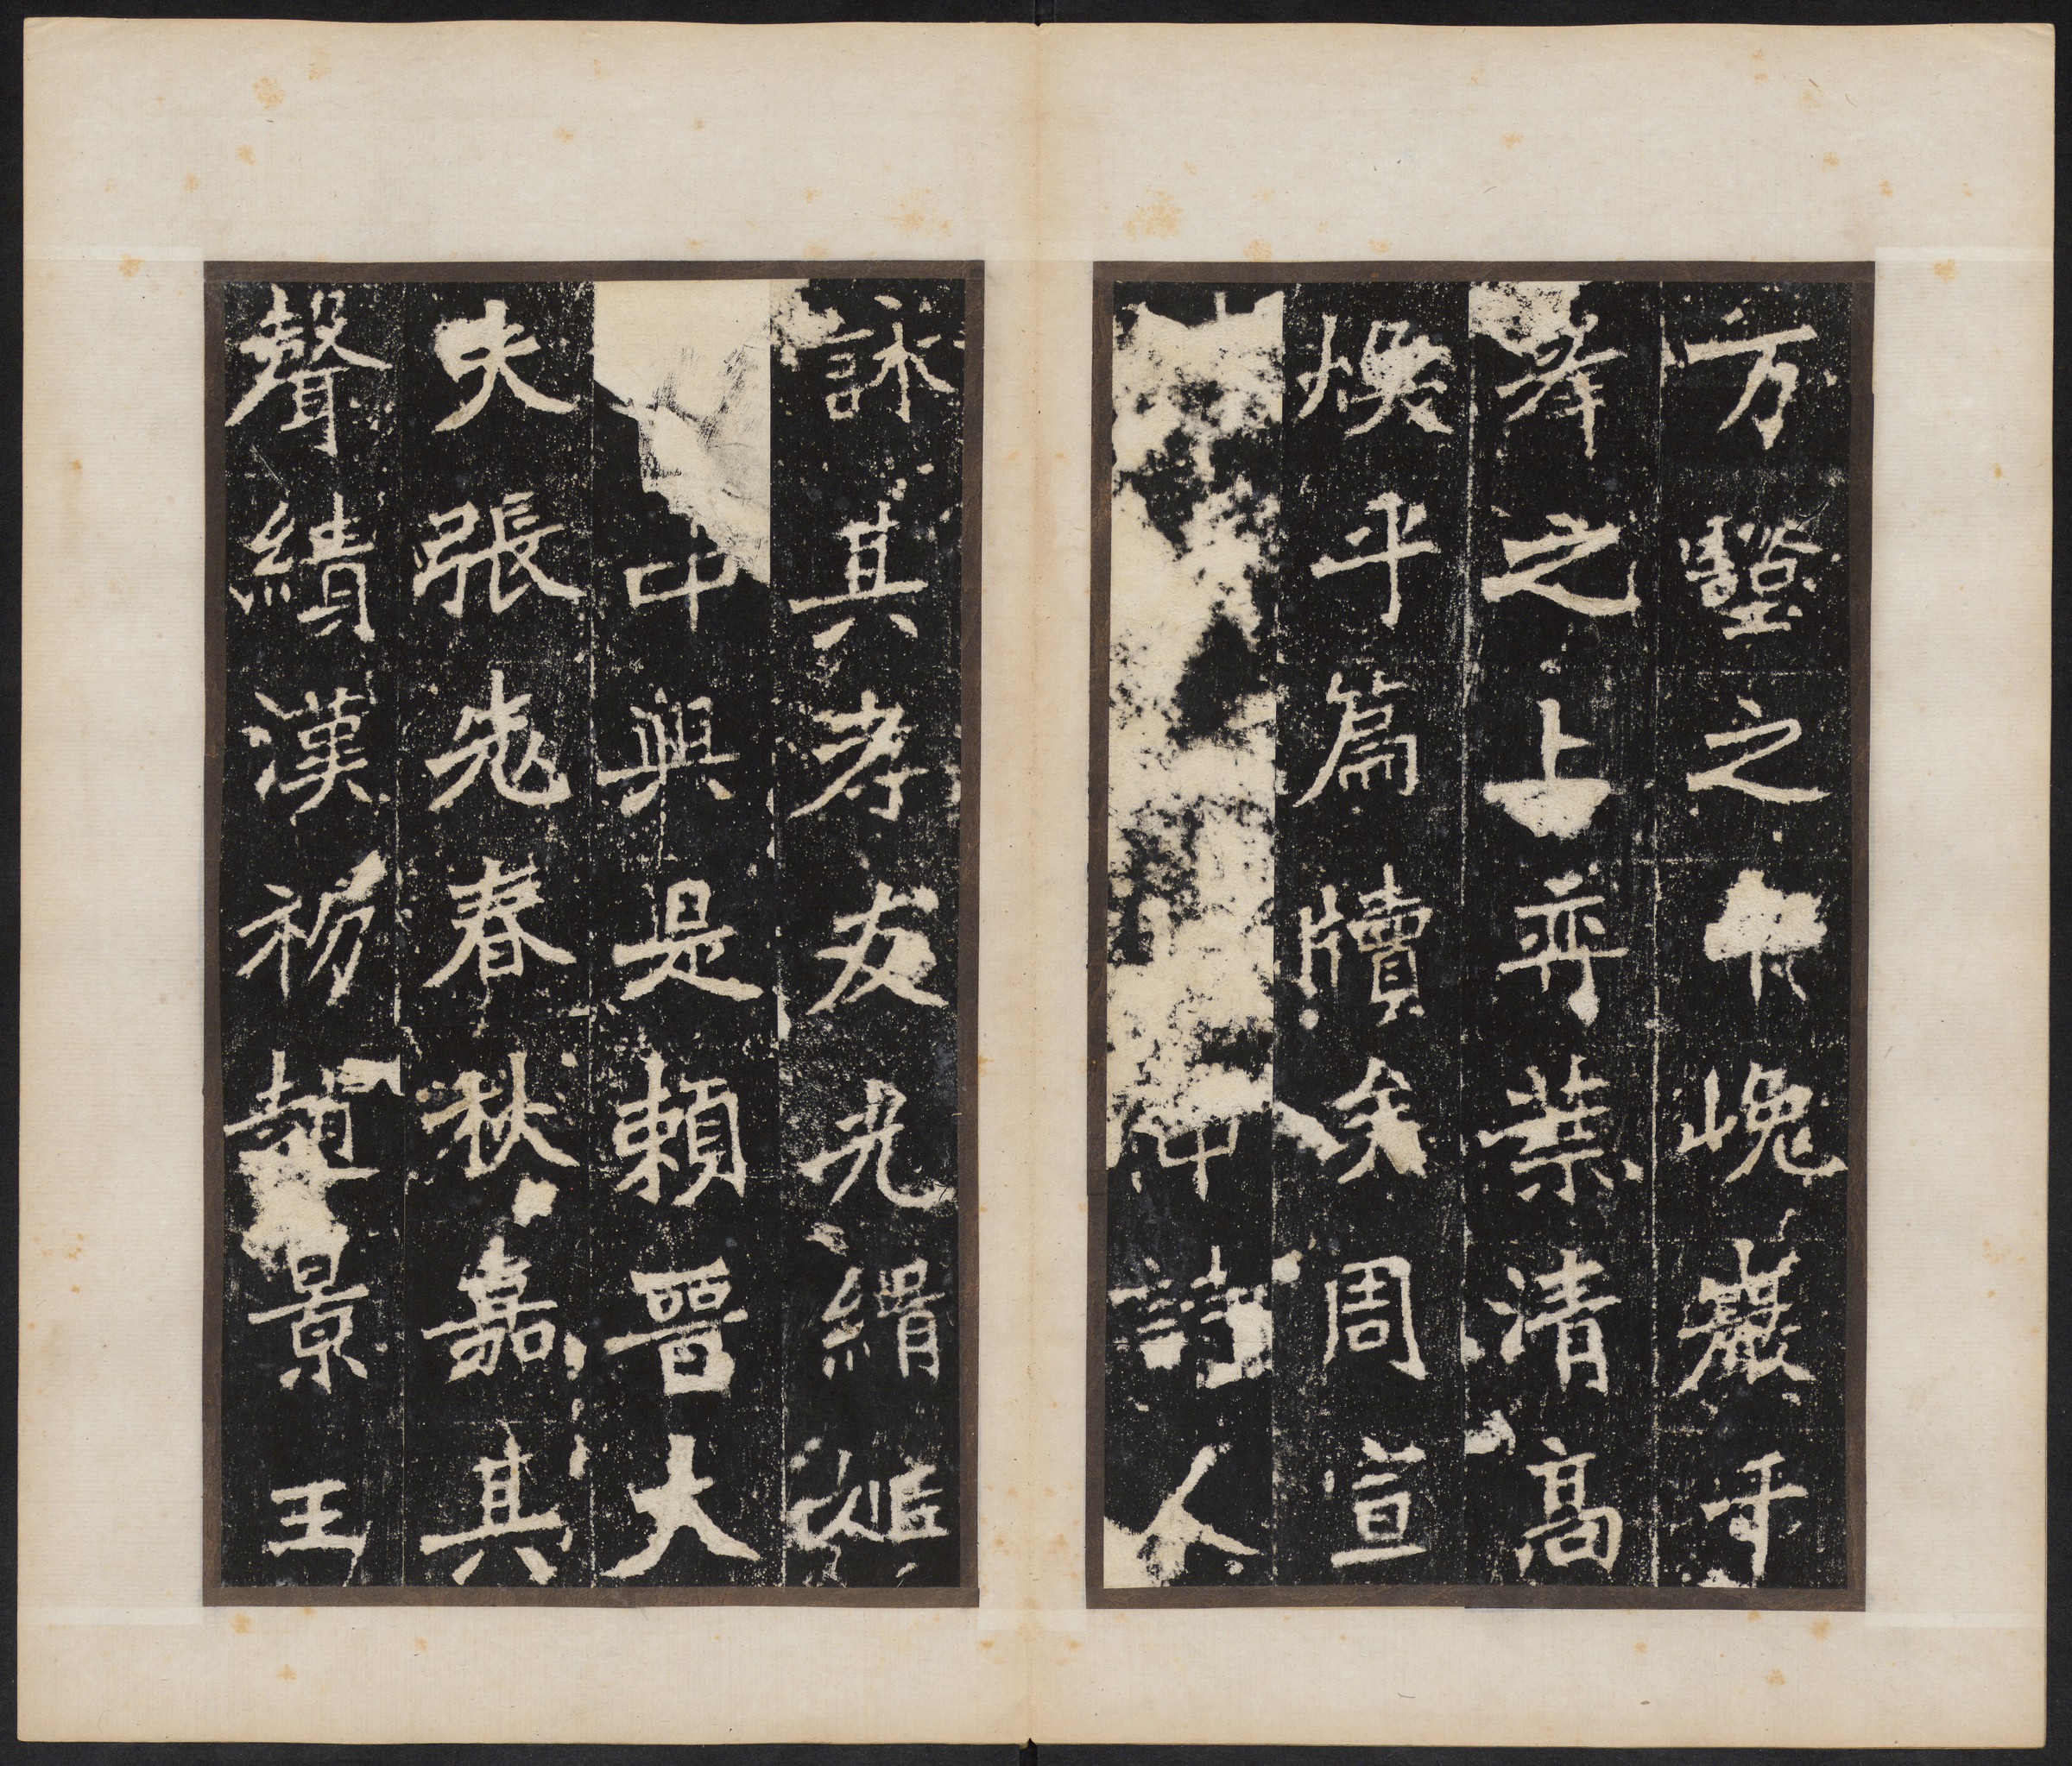 万壑之中巉巖千
峯之上弈葉清高
煥乎篇牘矣周宣
中詩人
詠其孝友光緝姬
中興是賴晉大
夫張老春秋嘉其
聲績漢初趙景王